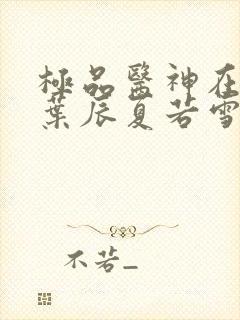 極品醫神在
葉辰夏若雪
不若_